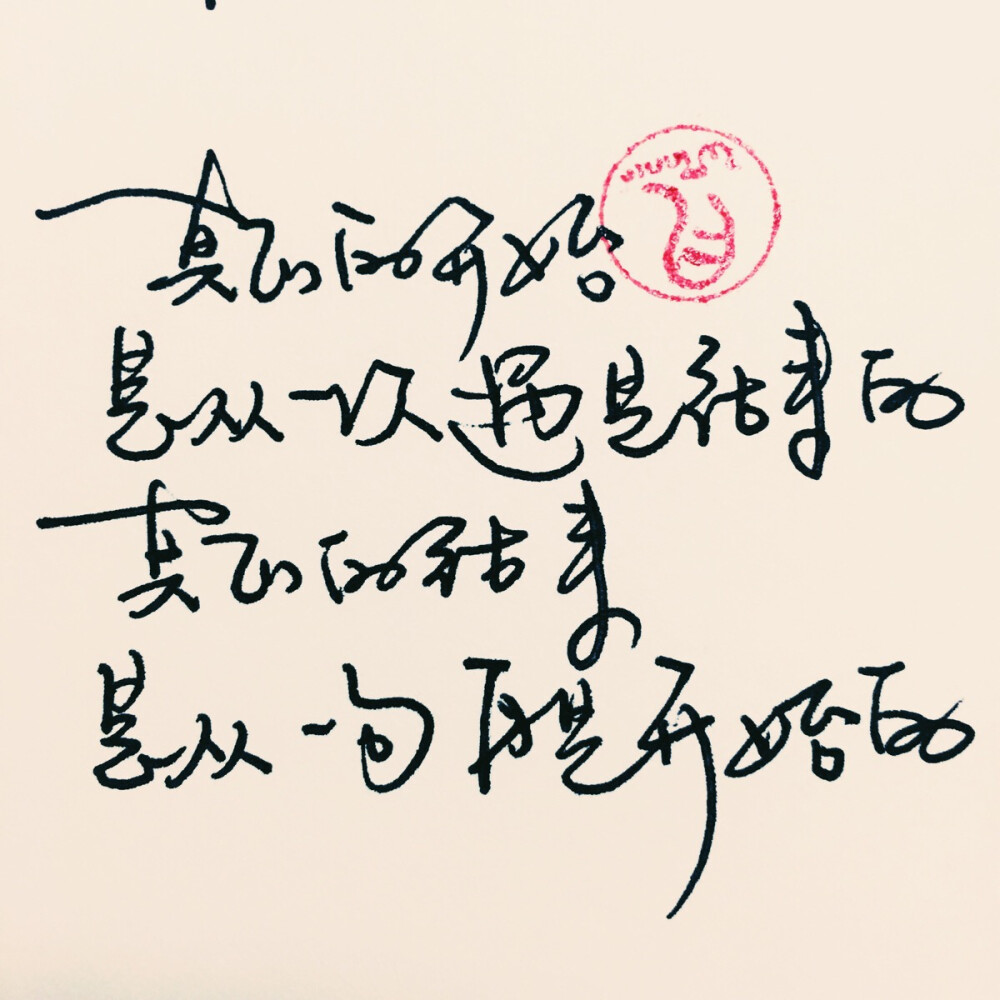 真正的开始
是从一次遇見结束的
真正的结束
是从一句再見开始的